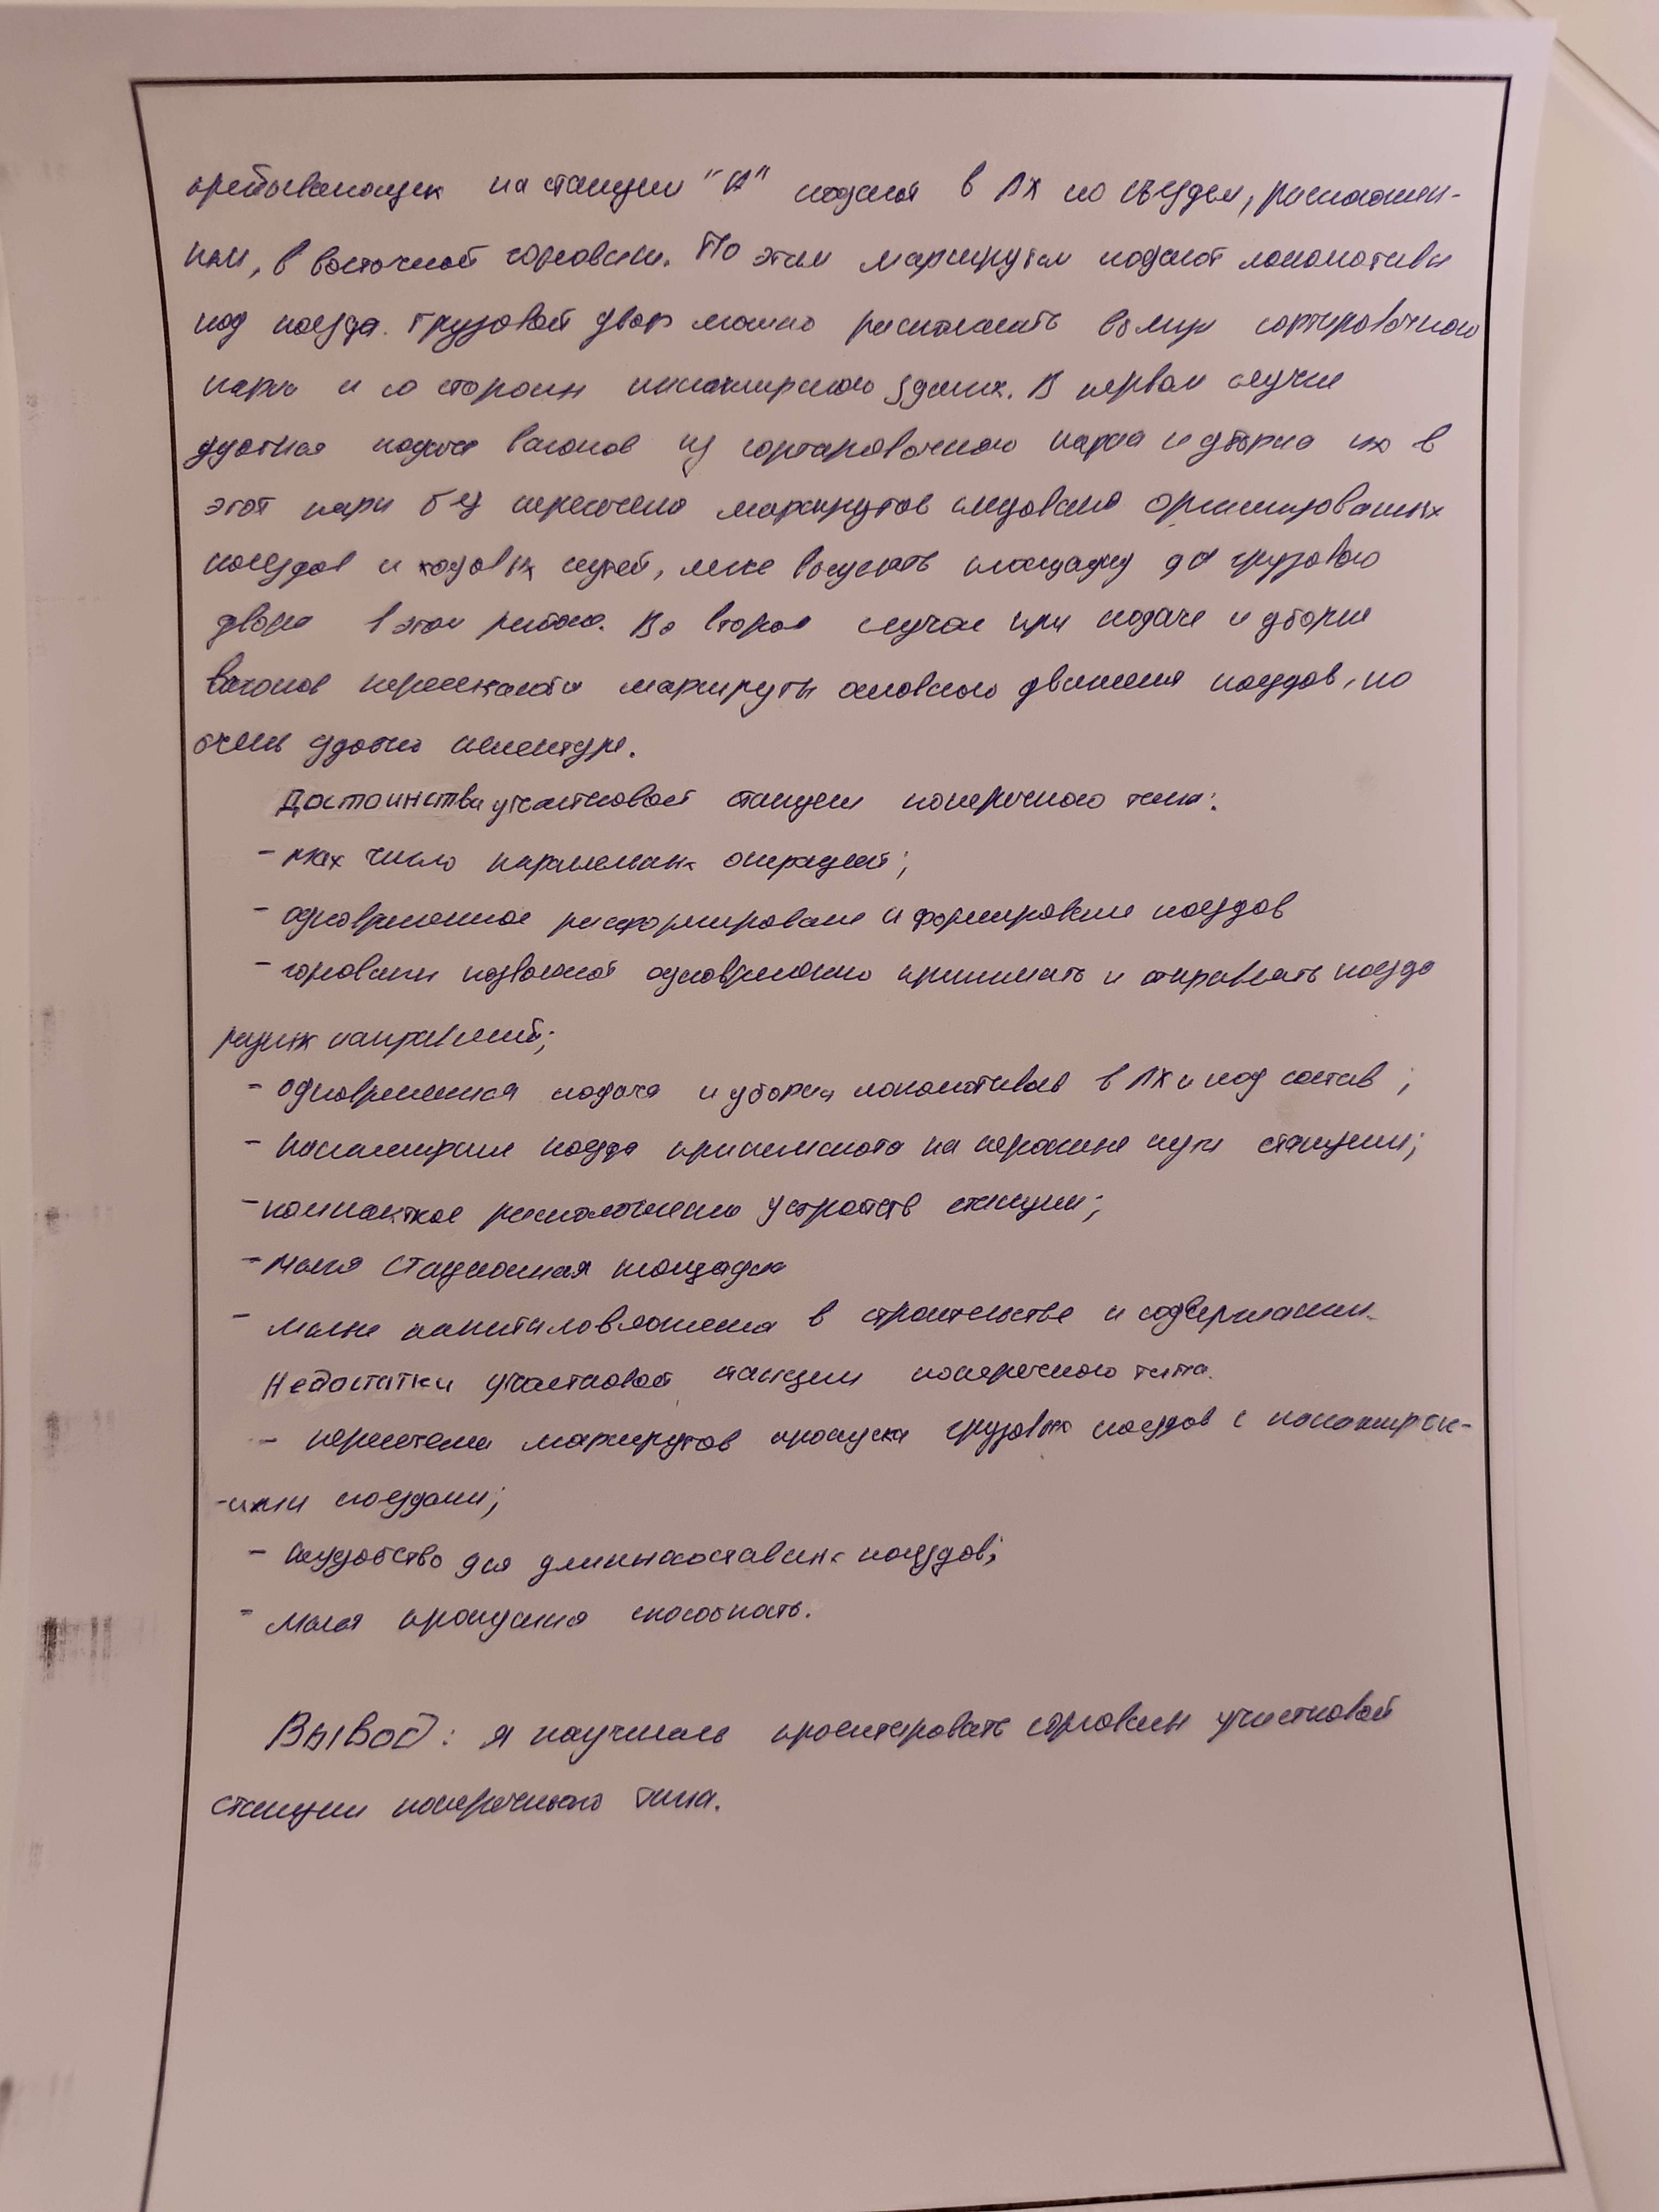 пребывающих на станции "А" подают в ЛХ по съездам, расположен-
ным, в восточной горловине. По этим маршрутам подают локомотивы
под поезда. Грузовой двор можно располагать вблизи сортировочного
парка и со стороны пассажирского здания. В первом случае
удобная подача вагонов из сортировочного парка и уборка их в
этот парк без пересечения маршрутов следования организованных
поездов и ходовых путей, легче выделить площадку для грузового
двора в этом районе. Во втором случае при подаче и уборке
вагонов пересекаются маршруты основного движения поездов, но
очень удобно клиентуре.
Достоинства участковой станции поперечного типа:
- max число параллельных операций;
- одновременное расформирование и формирование поездов
- горловины позволяют одновременно принимать и отправлять поезда
разных направлений;
- одновременная подача и уборка локомотивов в ЛХ и под состав;
- пассажирские поезда принимаются на крайние пути станции;
- компактное расположение устройств станции;
- малая станционная площадка
- малые капиталовложения в строительстве и содержании.
Недостатки участковой станции поперечного типа.
- пересечение маршрутов пропуска грузовых поездов с пассажирск-
-ими поездами;
- неудобство для длинносоставных поездов;
- малая пропускная способность.
Вывод: я научилась проектировать горловины участковой
станции поперечного типа.